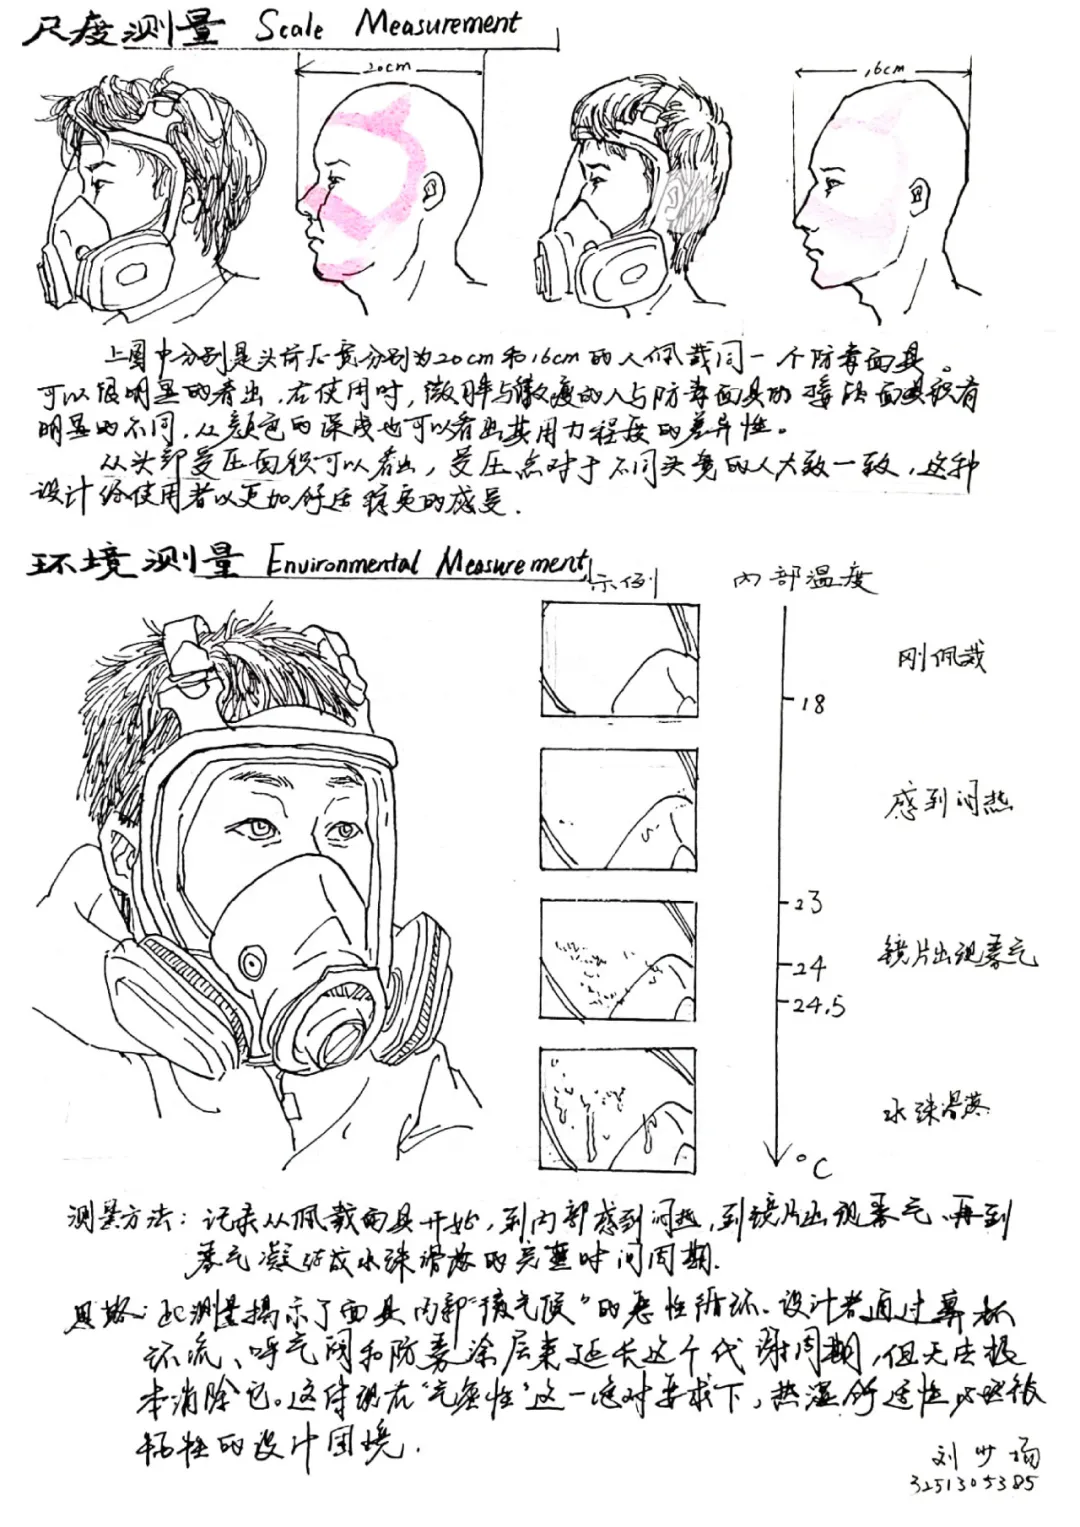 尺度测量 Scale Measurement
20cm
16cm
上图中分别是头前后宽分别为20cm和16cm的人佩戴同一个防毒面具。
可以很明显的看出,在使用时,微胖与微瘦的人与防毒面具的接触面积有
明显的不同,从颜色的深浅也可以看出其用力程度的差异性。
从头部受压面积可以看出,受压点对于不同头宽的人大致一致,这种
设计给使用者以更加舒适的感受.
环境测量 Environmental Measurement
示例
内部温度
刚佩戴
18
感到闷热
23
镜片出现雾气
24
24.5
水珠滑落
°C
测量方法:记录从佩戴面具开始,到内部感到闷热,到镜片出现雾气、再到
雾气凝结成水珠滑落的完整时间周期.
思路:此测量揭示了面具内部“微气候”的恶性循环.设计者通过鼻杯
环流、呼气阀和防雾涂层来延长这个代谢周期,但无法根
本消除它。这体现在“气密性”这一绝对要求下,热湿舒适性必然被
牺牲的设计困境.
刘
3251305385